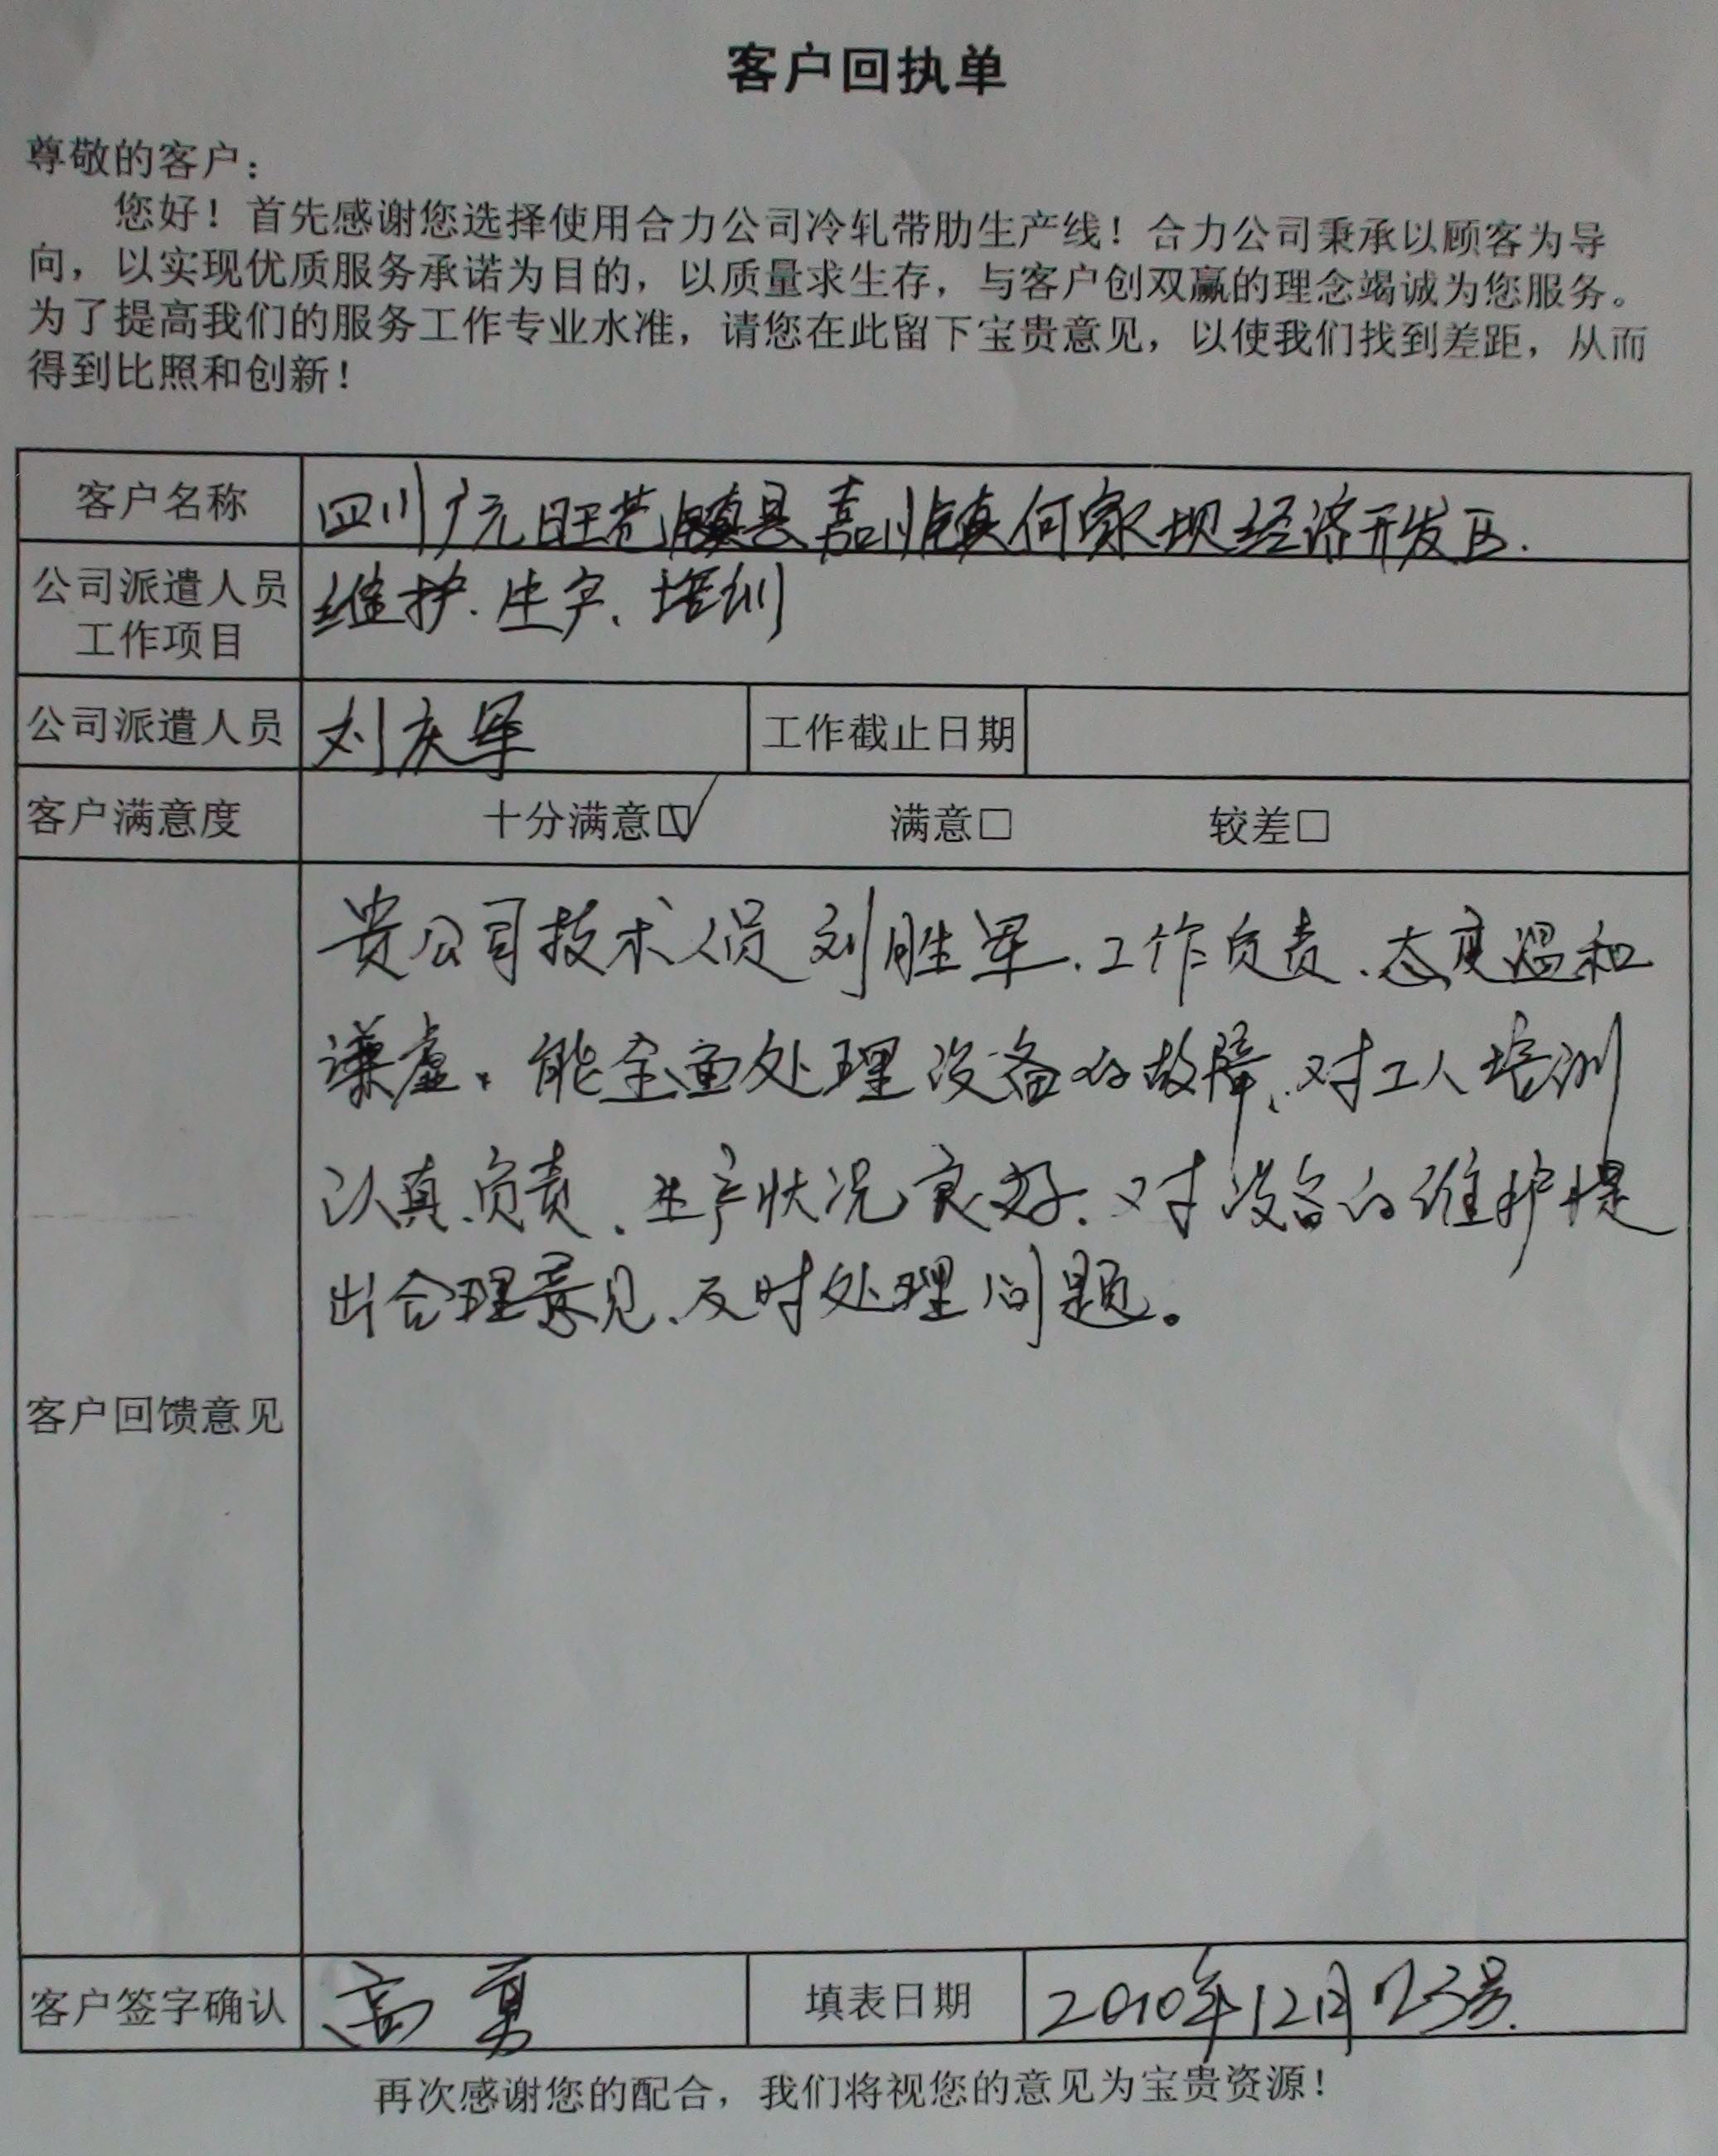 客户回执单
尊敬的客户：
您好！首先感谢您选择使用合力公司冷轧带肋生产线！合力公司秉承以顾客为导
向，以实现优质服务承诺为目的，以质量求生存，与客户创双赢的理念竭诚为您服务。
为了提高我们的服务工作专业水准，请您在此留下宝贵意见，以使我们找到差距，从而
得到比照和创新！
客户名称 四川广元旺苍县嘉川镇何家坝经济开发区.
公司派遣人员
工作项目
维护、生产、培训
公司派遣人员 刘庆军 工作截止日期
客户满意度 十分满意☑ 满意□ 较差□
贵公司技术人员刘胜军、工作负责、态度温和
谦虚、能全面处理设备的故障、对工人培训
认真负责、生产状况良好、对设备的维护提
出合理意见、及时处理问题。
客户回馈意见
客户签字确认 高勇 填表日期 2010年12月23号.
再次感谢您的配合，我们将视您的意见为宝贵资源！